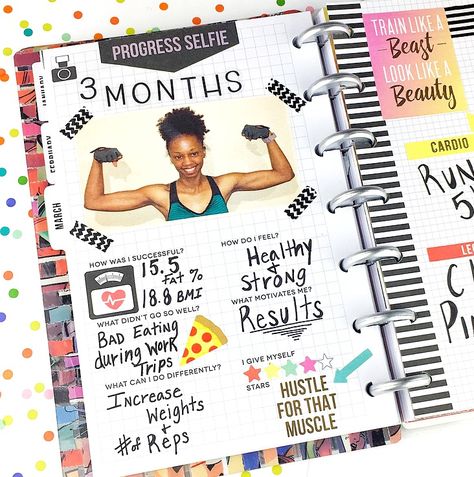 PROGRESS SELFIE
3 MONTHS
JANUARY
FEBRUARY
MARCH
HOW WAS I SUCCESSFUL?
15.5
FAT %
18.8 BMI
WHAT DIDN'T GO SO WELL?
BAD Eating
during Work
Trips
WHAT CAN I DO DIFFERENTLY?
Increase
Weights
+
# of Reps
HOW DO I FEEL?
Healthy
&
Strong
WHAT MOTIVATES ME?
Results
I GIVE MYSELF
STARS
HUSTLE
FOR THAT
MUSCLE
TRAIN LIKE A
Beast
LOOK LIKE A
Beauty
CARDIO
RUN
5
LE